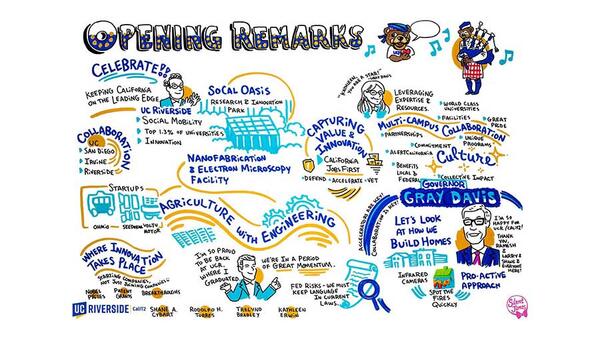 OPENING REMARKS
CELEBRATE!!
KEEPING CALIFORNIA
ON THE LEADING EDGE
UC RIVERSIDE
SOCIAL MOBILITY
TOP 1.3% OF UNIVERSITIES
INNOVATION
SOCAL OASIS
RESEARCH & INNOVATION
PARK
COLLABORATION
UC
SAN DIEGO
IRVINE
RIVERSIDE
NANOFABRICATION
& ELECTRON MICROSCOPY
FACILITY
CAPTURING
VALUE &
INNOVATION
CALIFORNIA
JOBS FIRST
DEFEND
ACCELERATE
VET
YOU ARE A STAR!"
LEVERAGING
EXPERTISE &
RESOURCES.
WORLD CLASS
UNIVERSITIES
FACILITIES
GREAT
PRIDE
MULTI-CAMPUS COLLABORATION
PARTNERSHIPS
COMMITMENT
UNIQUE
PROGRAMS
ALERTCALIFORNIA
CULTURE
BENEFITS
LOCAL &
FEDERAL
COLLECTIVE IMPACT
STARTUPS
OHMIO
MOTOR
AGRICULTURE WITH ENGINEERING
GOVERNOR
GRAY DAVIS
LET'S LOOK
AT HOW WE
BUILD HOMES
I'M SO
HAPPY FOR
UCR/CALIT2!
THANK
YOU,
RAMESH
&
EVERYONE
HERE!
INFRARED
CAMERAS
SPOT THE
FIRES
QUICKLY
PRO-ACTIVE
APPROACH
WHERE INNOVATION
TAKES PLACE
STARTING COMPANIES,
NOT JUST JOINING COMPANIES
NOBEL
PRIZES
PATENT
GRANTS
BREAKTHROUGHS
I'M SO PROUD
TO BE BACK
AT UCR
WHERE I
GRADUATED.
WE'RE IN A PERIOD
OF GREAT MOMENTUM.
FED RISKS - WE MUST
KEEP LANGUAGE
IN CURRENT
LAWS
UC RIVERSIDE
CALIT2
SHANE A.
CYBART
RODOLFO H.
TORRES
TRELVIND
BRADLEY
KATHLEEN
ERWIN